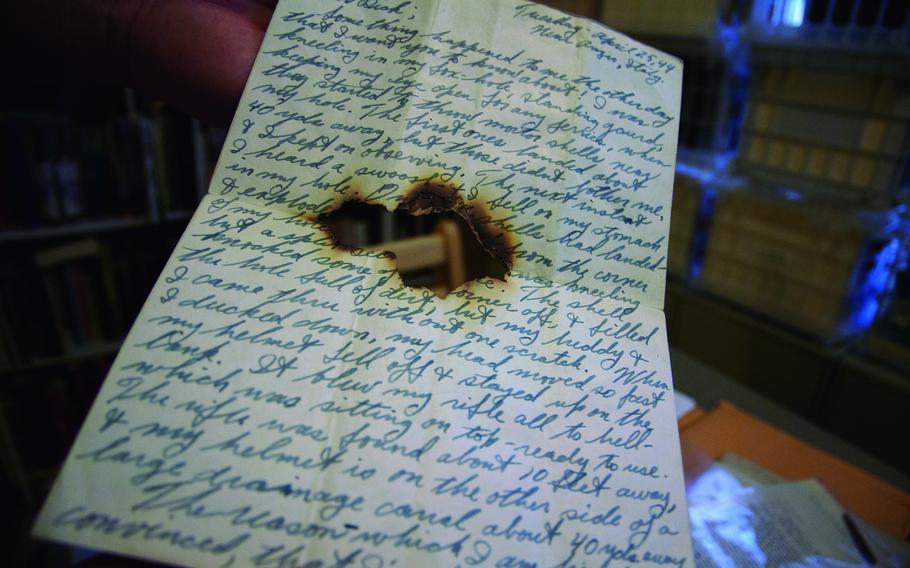 Tuesday, April 25, 44
Near Anzio, Italy
Dad,
Some thing happened to me the other day
that I want you to know about. I was
kneeling in my fox-hole, standing guard
keeping my eyes open for any Jerries, when
they started to throw mortar shells near
my hole. The first ones landed about
40 yds away, but those didn't bother me,
& I kept on observing. The next instant
I heard a swoosh, I fell on my stomach
in my hole. shells had landed
& exploded from the corner
of my kneeling
but a The shell
knocked some of corner off, & filled
the hole full of dirt, but my buddy &
I came thru without one scratch. When
I ducked down, my head moved so fast
my helmet fell off & stayed up on the
bank. It blew my rifle all to hell-
which was sitting on top-ready to use.
The rifle was found about 10 feet away,
& my helmet is on the other side of a
large drainage canal about 40 yds away
The reason which I am
convinced, that I